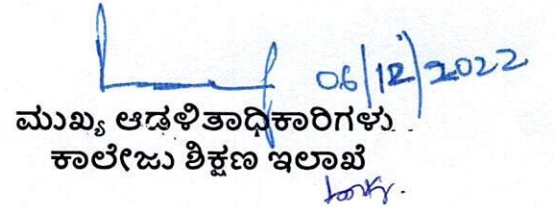 06/12/2022
ಮುಖ್ಯ ಆಡಳಿತಾಧಿಕಾರಿಗಳು
ಕಾಲೇಜು ಶಿಕ್ಷಣ ಇಲಾಖೆ